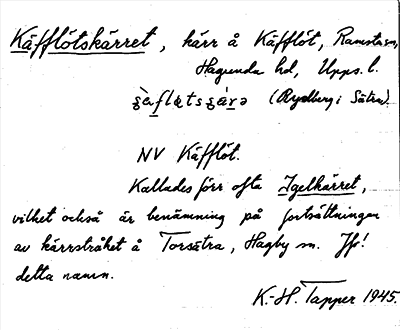 Käfflötskärret, kärr å Käfflöt, Ramsta sn,
Hagunda hd, Upps. l.
(Rydberg i Sätra)
NV Käfflöt.
Kallades förr ofta Igelkärret,
vilket också är benämning på fortsättningen
av kärrstråket å Torsätra, Hagby sn. Jfr!
detta namn.
K.-H. Tapper 1945.